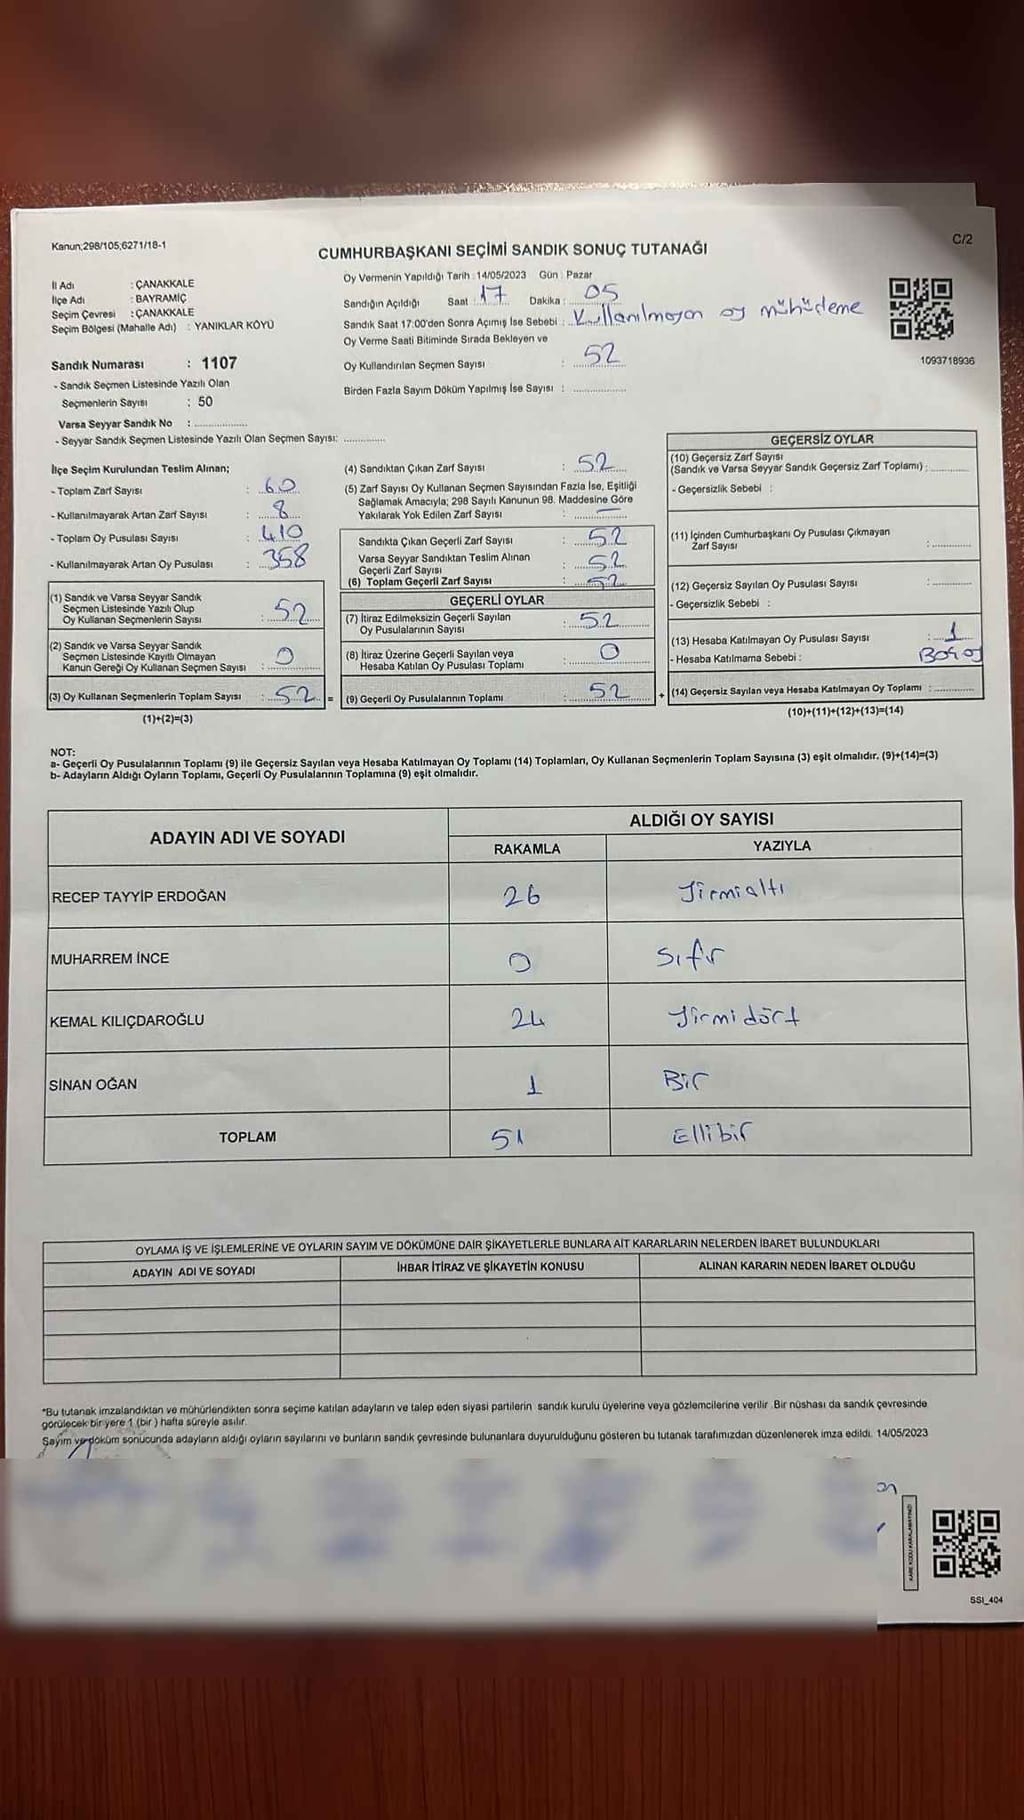 Kanun;298/105,6271/18-1
C/2
CUMHURBAŞKANI SEÇİMİ SANDIK SONUÇ TUTANAĞI
İl Adı : ÇANAKKALE
İlçe Adı : BAYRAMİÇ
Seçim Çevresi : ÇANAKKALE
Seçim Bölgesi (Mahalle Adı) : YANIKLAR KÖYÜ
Oy Vermenin Yapıldığı Tarih : 14/05/2023 Gün : Pazar
Sandığın Açıldığı Saat : 17 Dakika : 05
Sandık Saat 17:00'den Sonra Açımış İse Sebebi : Kullanılmayan oy mühürleme
Oy Verme Saati Bitiminde Sırada Bekleyen ve
Oy Kullandırılan Seçmen Sayısı : 52
Birden Fazla Sayım Döküm Yapılmış İse Sayısı :
1093718936
Sandık Numarası : 1107
- Sandık Seçmen Listesinde Yazılı Olan
Seçmenlerin Sayısı : 50
Varsa Seyyar Sandık No :
- Seyyar Sandık Seçmen Listesinde Yazılı Olan Seçmen Sayısı:
İlçe Seçim Kurulundan Teslim Alınan;
- Toplam Zarf Sayısı : 60
- Kullanılmayarak Artan Zarf Sayısı : 8
- Toplam Oy Pusulası Sayısı : 410
- Kullanılmayarak Artan Oy Pusulası : 358
(1) Sandık ve Varsa Seyyar Sandık
Seçmen Listesinde Yazılı Olup
Oy Kullanan Seçmenlerin Sayısı : 52
(2) Sandık ve Varsa Seyyar Sandık
Seçmen Listesinde Kayıtlı Olmayan
Kanun Gereği Oy Kullanan Seçmen Sayısı : 0
(3) Oy Kullanan Seçmenlerin Toplam Sayısı : 52 =
(1)+(2)=(3)
(4) Sandıktan Çıkan Zarf Sayısı : 52
(5) Zarf Sayısı Oy Kullanan Seçmen Sayısından Fazla İse, Eşitliği
Sağlamak Amacıyla; 298 Sayılı Kanunun 98. Maddesine Göre
Yakılarak Yok Edilen Zarf Sayısı : —
Sandıkta Çıkan Geçerli Zarf Sayısı : 52
Varsa Seyyar Sandıktan Teslim Alınan
Geçerli Zarf Sayısı : 52
(6) Toplam Geçerli Zarf Sayısı : 52
GEÇERLİ OYLAR
(7) İtiraz Edilmeksizin Geçerli Sayılan
Oy Pusulalarının Sayısı : 52
(8) İtiraz Üzerine Geçerli Sayılan veya
Hesaba Katılan Oy Pusulası Toplamı : 0
(9) Geçerli Oy Pusulalarının Toplamı : 52 +
GEÇERSİZ OYLAR
(10) Geçersiz Zarf Sayısı
(Sandık ve Varsa Seyyar Sandık Geçersiz Zarf Toplamı) :
- Geçersizlik Sebebi :
(11) İçinden Cumhurbaşkanı Oy Pusulası Çıkmayan
Zarf Sayısı :
(12) Geçersiz Sayılan Oy Pusulası Sayısı :
- Geçersizlik Sebebi :
(13) Hesaba Katılmayan Oy Pusulası Sayısı : 1
- Hesaba Katılmama Sebebi :
(14) Geçersiz Sayılan veya Hesaba Katılmayan Oy Toplamı :
(10)+(11)+(12)+(13)=(14)
NOT:
a- Geçerli Oy Pusulalarının Toplamı (9) ile Geçersiz Sayılan veya Hesaba Katılmayan Oy Toplamı (14) Toplamları, Oy Kullanan Seçmenlerin Toplam Sayısına (3) eşit olmalıdır. (9)+(14)=(3)
b- Adayların Aldığı Oyların Toplamı, Geçerli Oy Pusulalarının Toplamına (9) eşit olmalıdır.
ADAYIN ADI VE SOYADI
ALDIĞI OY SAYISI
RAKAMLA YAZIYLA
RECEP TAYYİP ERDOĞAN 26 Yirmialtı
MUHARREM İNCE 0 Sıfır
KEMAL KILIÇDAROĞLU 24 Yirmidört
SİNAN OĞAN 1 Bir
TOPLAM 51 Ellibir
OYLAMA İŞ VE İŞLEMLERİNE VE OYLARIN SAYIM VE DÖKÜMÜNE DAİR ŞİKAYETLERLE BUNLARA AİT KARARLARIN NELERDEN İBARET BULUNDUKLARI
ADAYIN ADI VE SOYADI İHBAR İTİRAZ VE ŞİKAYETİN KONUSU ALINAN KARARIN NEDEN İBARET OLDUĞU
*Bu tutanak imzalandıktan ve mühürlendikten sonra seçime katılan adayların ve talep eden siyasi partilerin sandık kurulu üyelerine veya gözlemcilerine verilir .Bir nüshası da sandık çevresinde
görülecek bir yere 1 (bir ) hafta süreyle asılır.
Sayım ve döküm sonucunda adayların aldığı oyların sayılarını ve bunların sandık çevresinde bulunanlara duyurulduğunu gösteren bu tutanak tarafımızdan düzenlenerek imza edildi. 14/05/2023
KARE KODU KARALAMAYINIZ!
SSI_404